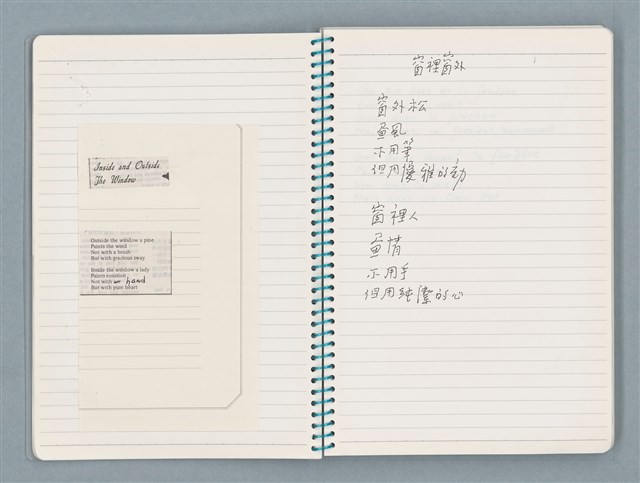 Inside and Outside
The Window
Outside the window a pine
Paints the wind
Not with a brush
But with gracious sway
Inside the window a lady
Paints emotion
Not with hand
But with pure heart
窗裡窗外
窗外松
畫風
不用筆
但用優雅的動
窗裡人
畫情
不用手
但用純潔的心